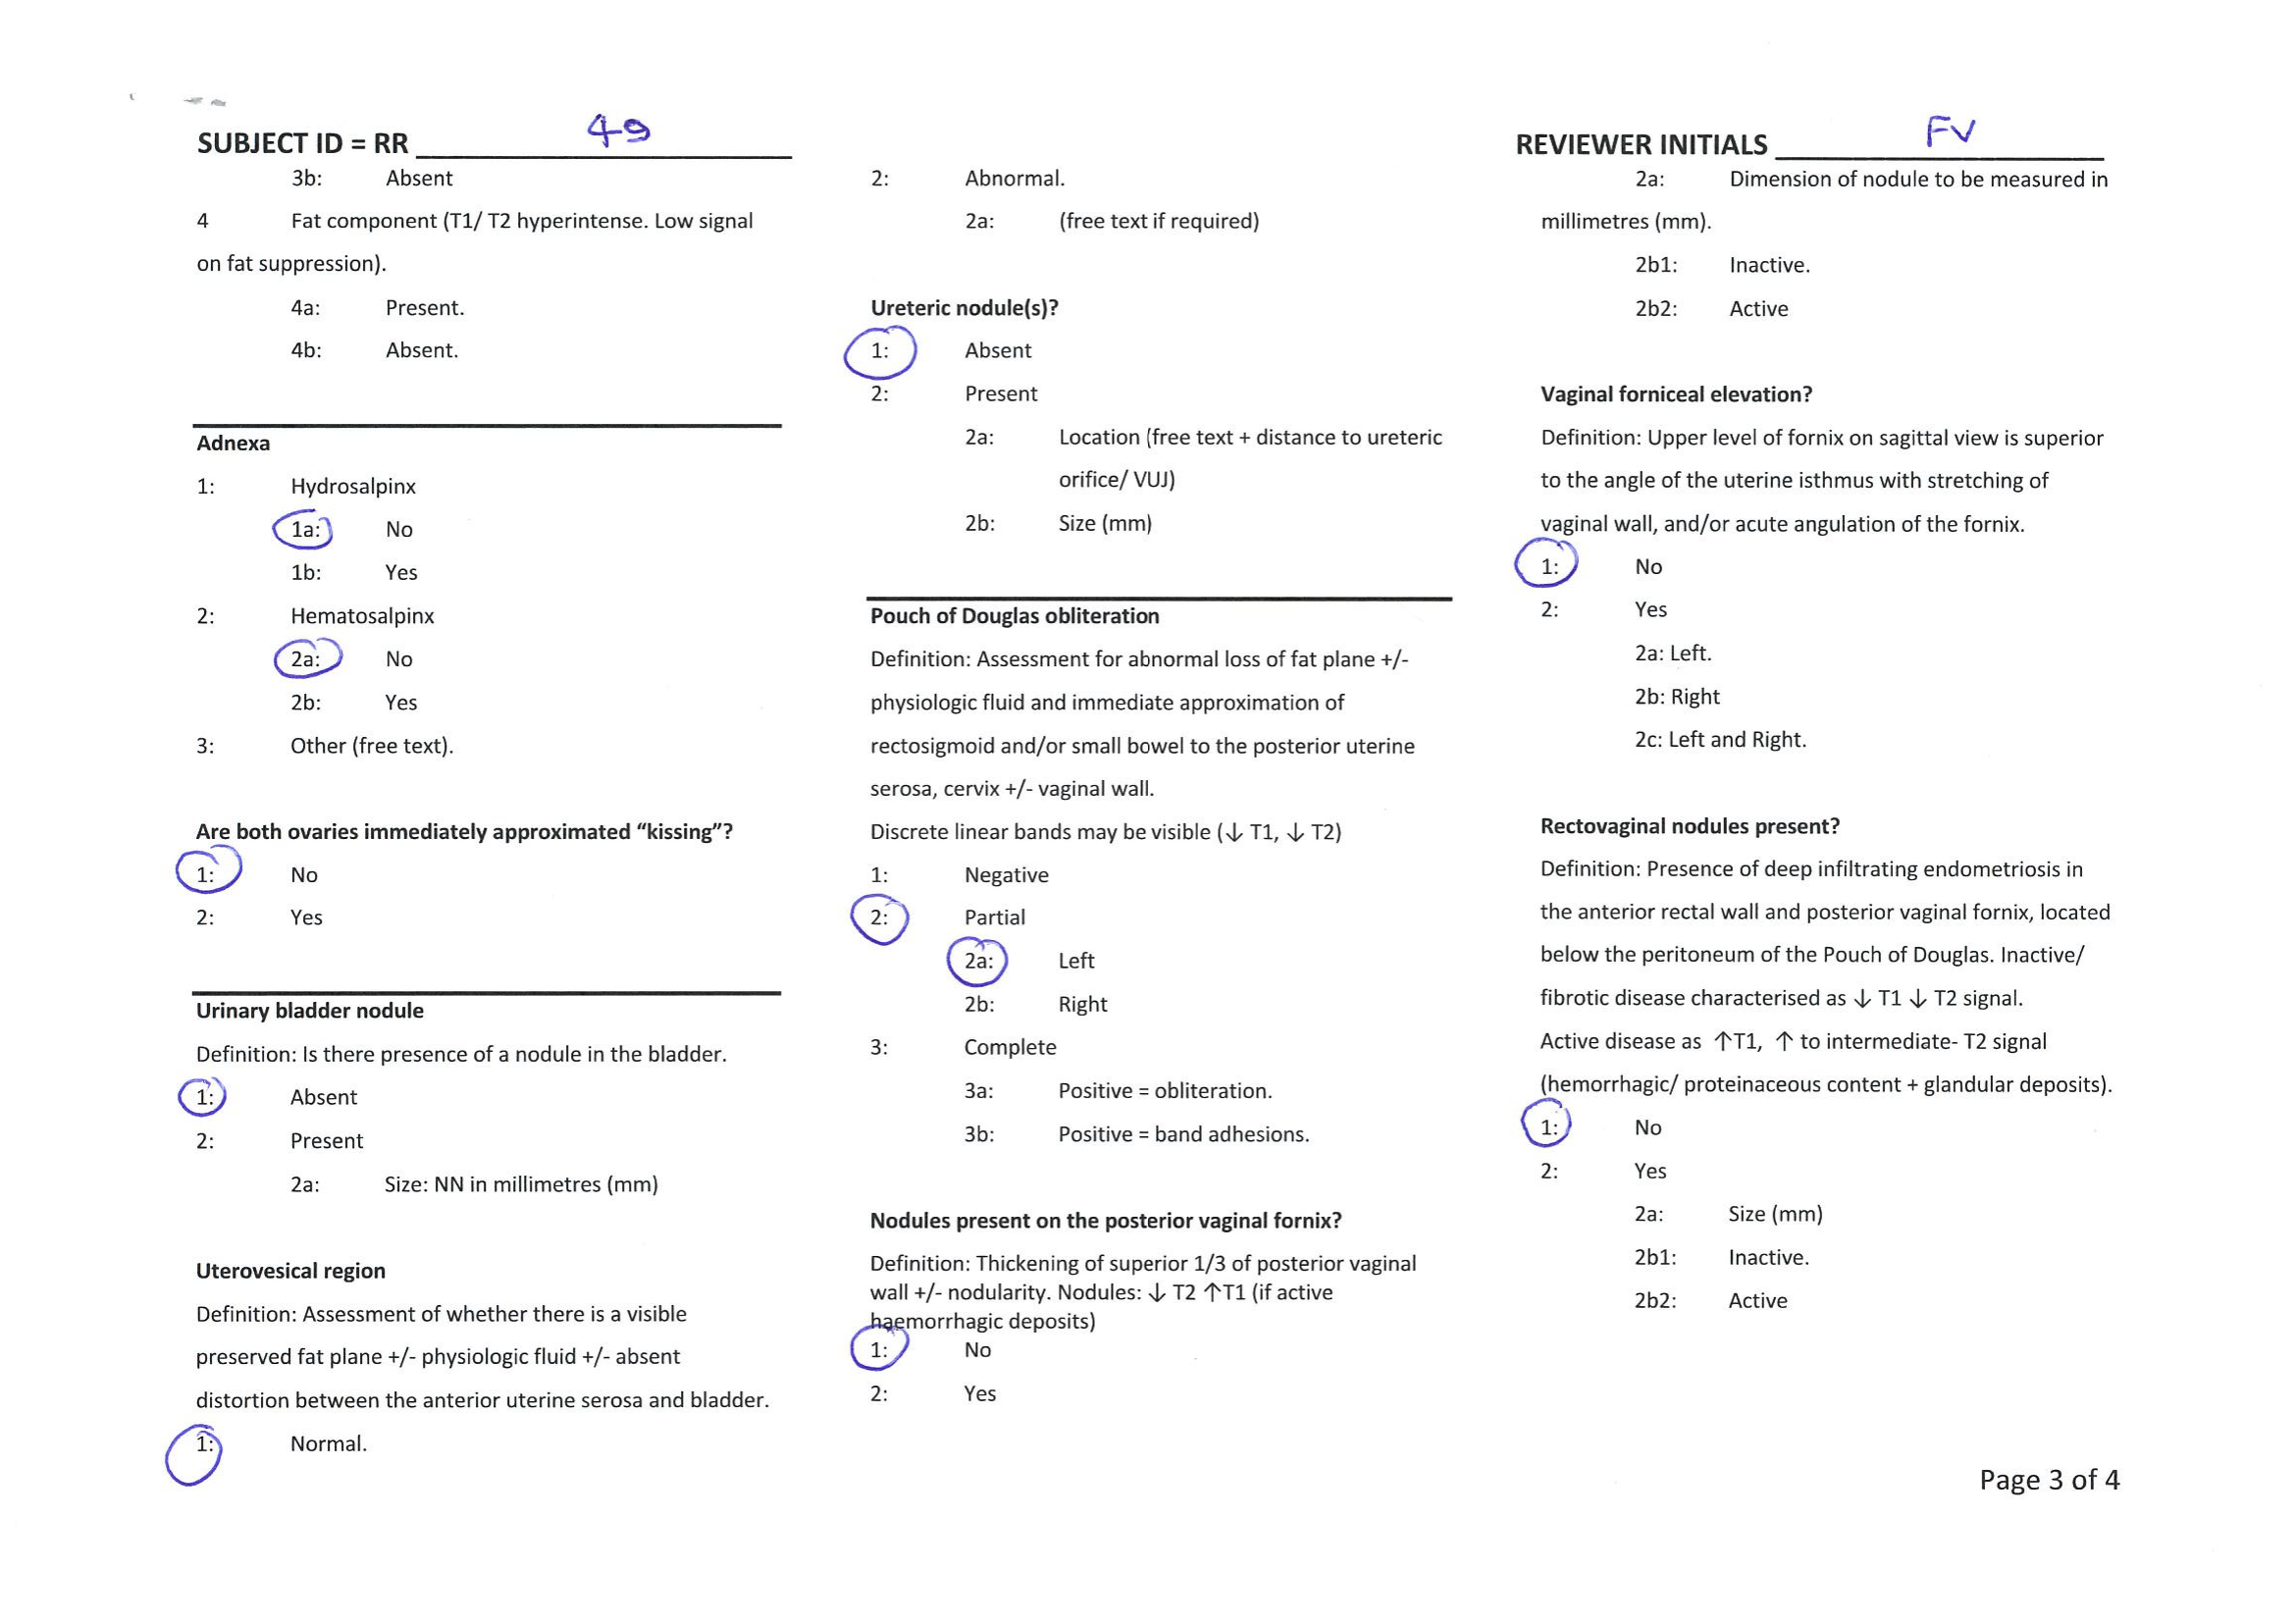 SUBJECT ID = RR 49
3b: Absent
4 Fat component (T1/ T2 hyperintense. Low signal
on fat suppression).
4a: Present.
4b: Absent.
Adnexa
1: Hydrosalpinx
1a: No
1b: Yes
2: Hematosalpinx
2a: No
2b: Yes
3: Other (free text).
Are both ovaries immediately approximated “kissing”?
1: No
2: Yes
Urinary bladder nodule
Definition: Is there presence of a nodule in the bladder.
1: Absent
2: Present
2a: Size: NN in millimetres (mm)
Uterovesical region
Definition: Assessment of whether there is a visible
preserved fat plane +/- physiologic fluid +/- absent
distortion between the anterior uterine serosa and bladder.
1: Normal.
2: Abnormal.
2a: (free text if required)
Ureteric nodule(s)?
1: Absent
2: Present
2a: Location (free text + distance to ureteric
orifice/ VUJ)
2b: Size (mm)
Pouch of Douglas obliteration
Definition: Assessment for abnormal loss of fat plane +/-
physiologic fluid and immediate approximation of
rectosigmoid and/or small bowel to the posterior uterine
serosa, cervix +/- vaginal wall.
Discrete linear bands may be visible (↓ T1, ↓ T2)
1: Negative
2: Partial
2a: Left
2b: Right
3: Complete
3a: Positive = obliteration.
3b: Positive = band adhesions.
Nodules present on the posterior vaginal fornix?
Definition: Thickening of superior 1/3 of posterior vaginal
wall +/- nodularity. Nodules: ↓ T2 ↑T1 (if active
haemorrhagic deposits)
1: No
2: Yes
REVIEWER INITIALS FV
2a: Dimension of nodule to be measured in
millimetres (mm).
2b1: Inactive.
2b2: Active
Vaginal forniceal elevation?
Definition: Upper level of fornix on sagittal view is superior
to the angle of the uterine isthmus with stretching of
vaginal wall, and/or acute angulation of the fornix.
1: No
2: Yes
2a: Left.
2b: Right
2c: Left and Right.
Rectovaginal nodules present?
Definition: Presence of deep infiltrating endometriosis in
the anterior rectal wall and posterior vaginal fornix, located
below the peritoneum of the Pouch of Douglas. Inactive/
fibrotic disease characterised as ↓ T1 ↓ T2 signal.
Active disease as ↑T1, ↑ to intermediate- T2 signal
(hemorrhagic/ proteinaceous content + glandular deposits).
1: No
2: Yes
2a: Size (mm)
2b1: Inactive.
2b2: Active
Page 3 of 4